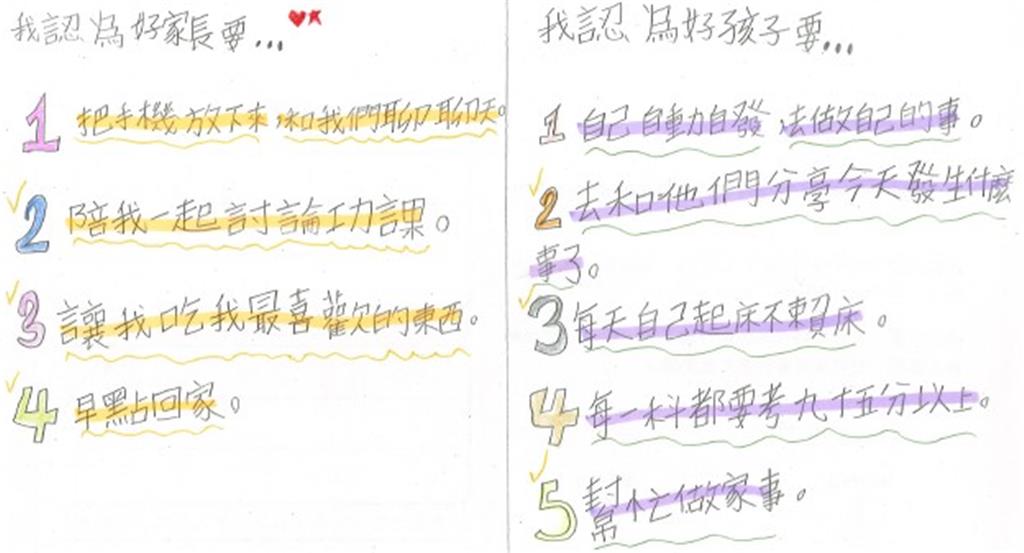 我認為好家長要...
1 把手機放下來,和我們聊聊天。
2 陪我一起討論功課。
3 讓我吃我最喜歡的東西。
4 早點回家。
我認為好孩子要...
1 自己自動自發,去做自己的事。
2 去和他們分享今天發生什麼
事了。
3 每天自己起床不賴床。
4 每一科都要考九十五分以上。
5 幫忙做家事。